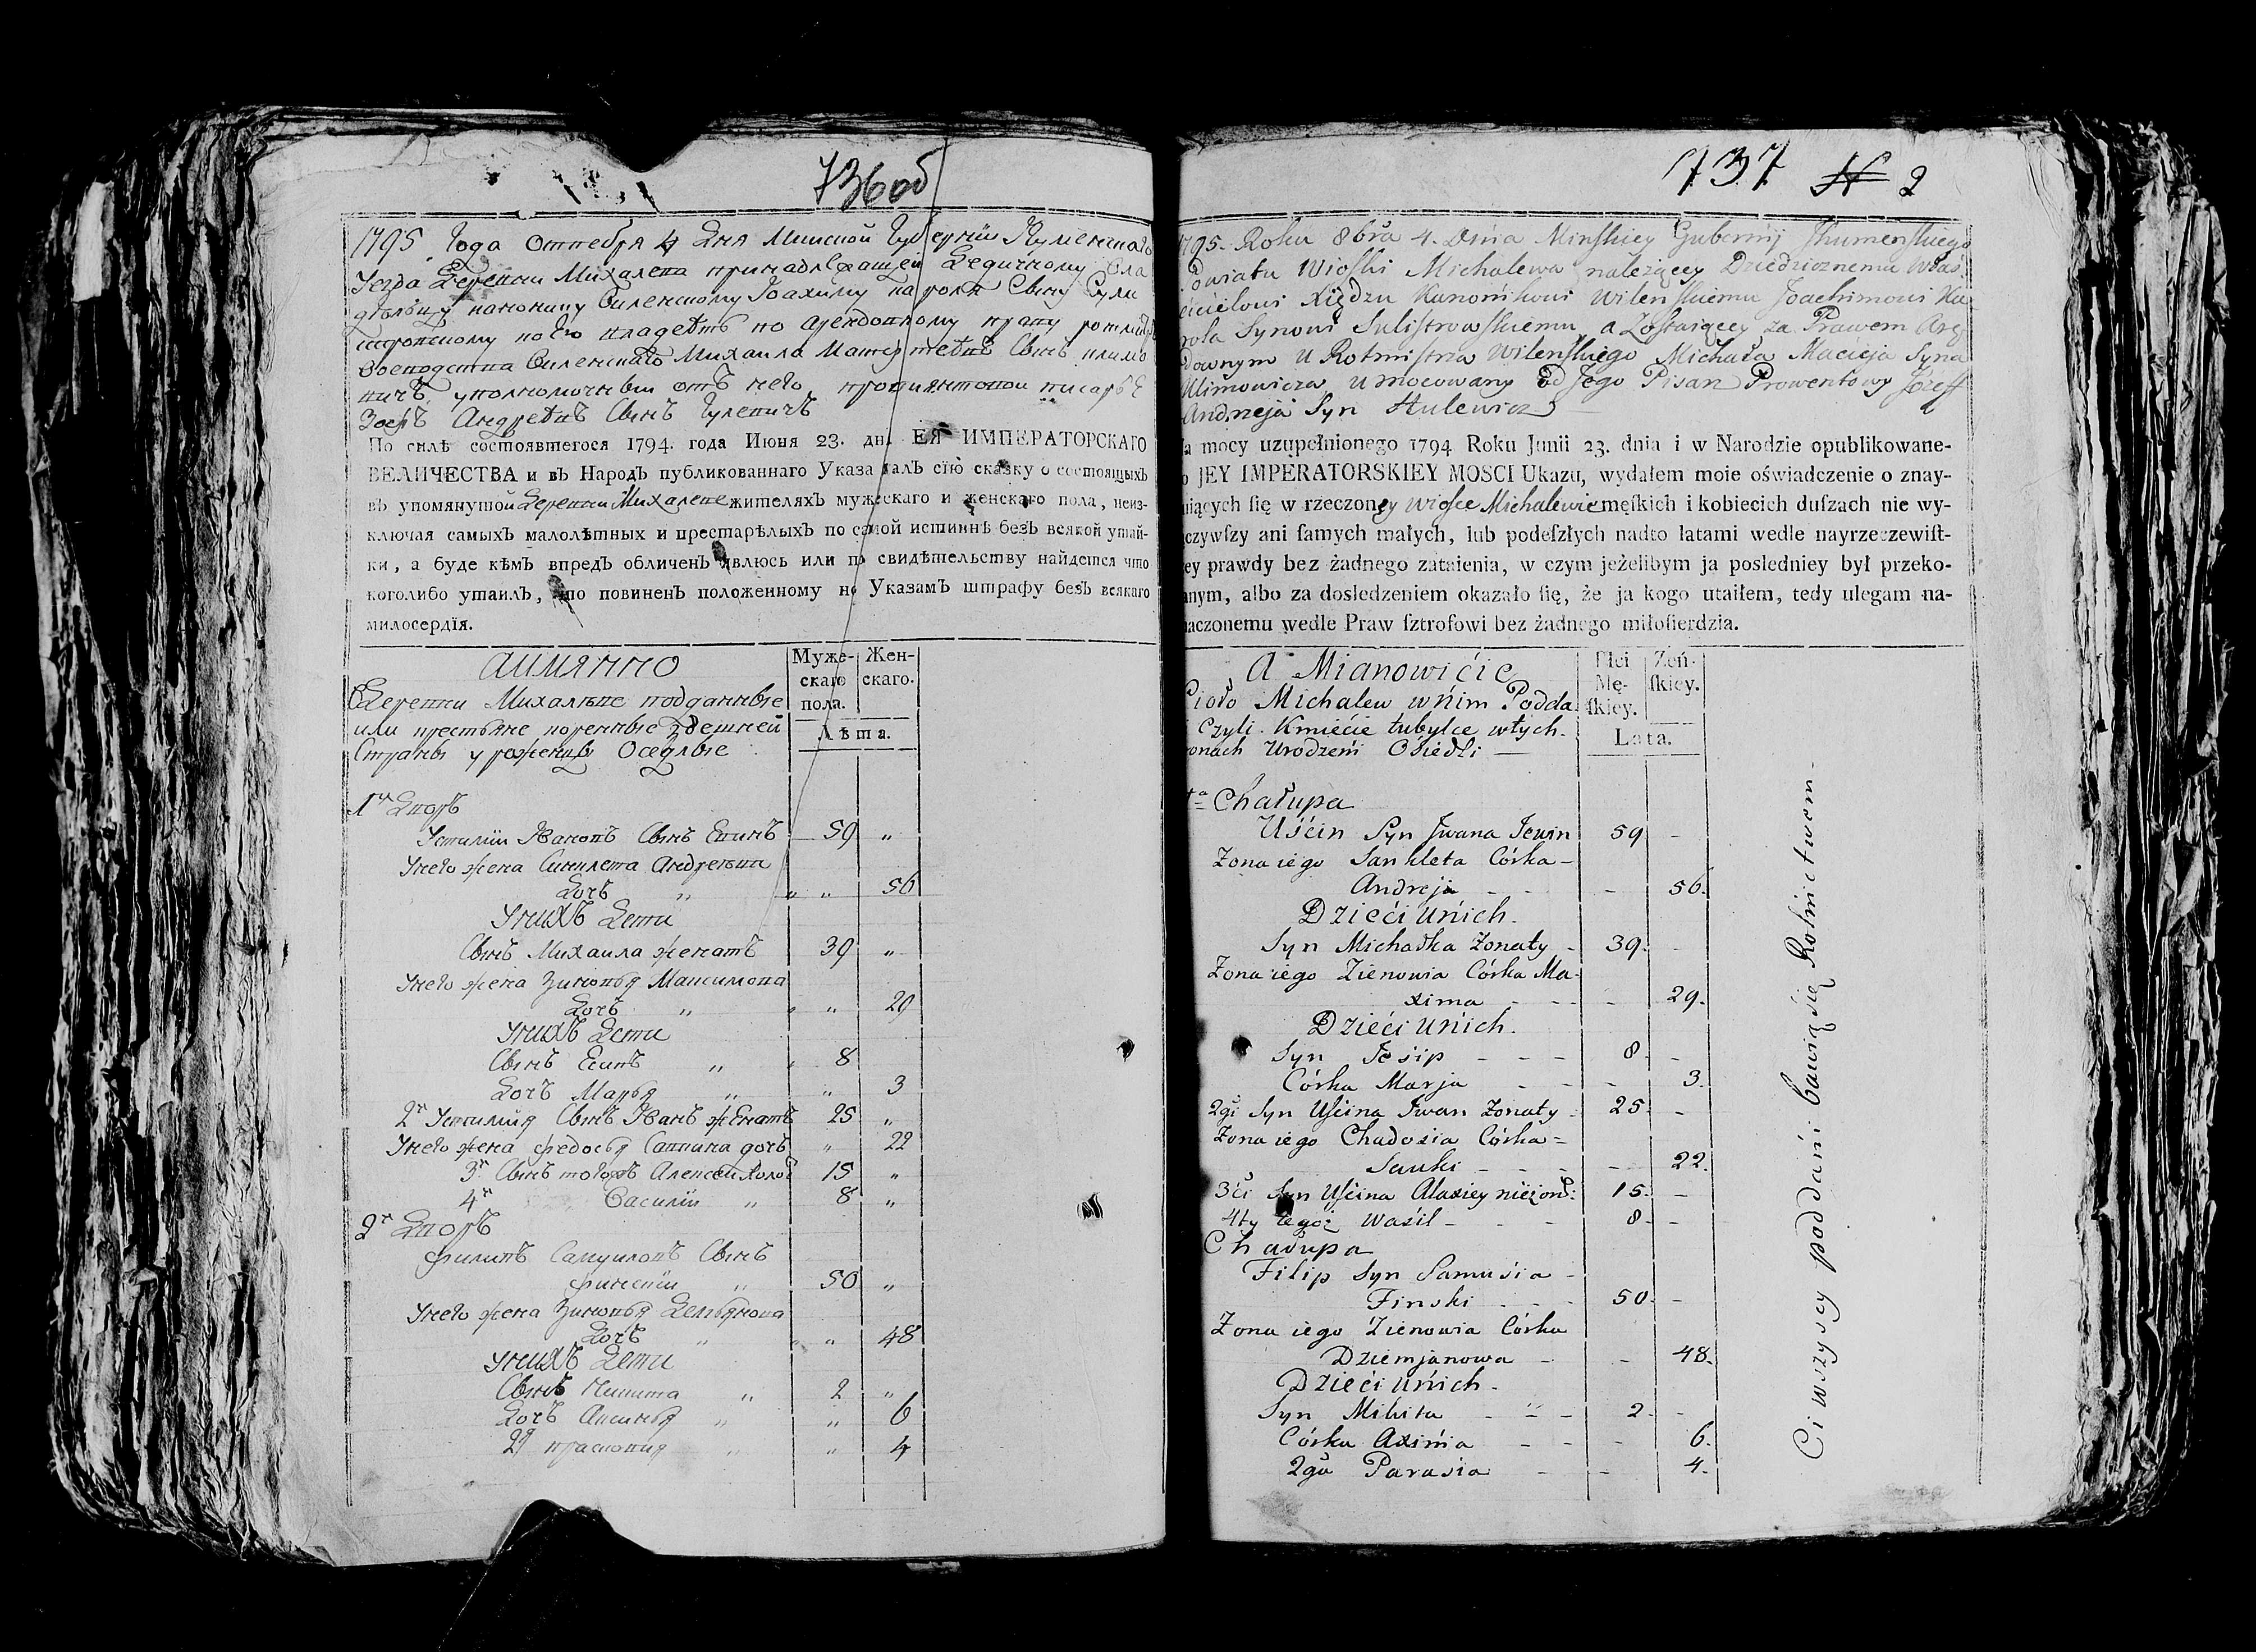 736об
1795 Года Октебря 4 Дня Минской Губернїи Игуменскаго
Уезда Деревни Михалева принадлежащей Ведичному Вла
дѣльцу канонику Виленскому Іоахиму Кароля Сыну Сули
стровскому по Его владетъ по арендовному праву ротмистр
Воеводства Виленскаго Михаила Матеретевъ Сынъ Клима
вичъ уполномочный отъ него провиянтовой писарь
Андреевъ Сынъ Гулевичъ
По силѣ состоявшегося 1794. года Июня 23. дня ЕЯ ИМПЕРАТОРСКАГО
ВЕЛИЧЕСТВА и въ Народъ публикованнаго Указа далъ сїю сказку о состоящыхъ
въ упомянутой Деревни Михалеве жителяхъ мужескаго и женскаго пола, неиз-
ключая самыхъ малолѣтных и престарѣлыхъ по самой истиннѣ безъ всякой утай-
ки, а буде кѣмъ впредъ обличенъ явлюсь или по свидѣтельству найдется что
коголибо утаилъ, то повиненъ положенному по Указамъ штрафу безъ всякаго
милосердїя.
аимянно
Муже-
скаго
пола.
Жен-
скаго.
Лѣта.
Деревни Михалеве подданные
или крестьяне коренные здешней
Страны уроженцы Оседлые
1й Дворъ
Устилїй Ивановъ Сынъ Евинъ 59 „
Унего жена Синклета Андреева
Дочь „ „ „ 56
Унихъ Дети
Сынъ Михаила женатъ 39 „
Унего жена Зиновья Максимова
Дочь „ „ „ 29
Унихъ Дети
Сынъ Есипъ „ „ 8
Дочь Марья „ „ 3
2й Устилия Сынъ Иванъ женатъ 25 „
Унего жена Федосья Саввина дочь „ 22
3й Сынъ тогожъ Алексей холос 15 „
4й „ Василїй „ 8 „
2й Дворъ
Филипъ Самуиловъ Сынъ
Финскїй „ 50 „
Унего жена Зиновья Демьянова
Дочь „ „ „ 48
Унихъ Дети
Сынъ Никита „ 2 „
Дочь Аксинья „ „ 6
2я Прасковия „ „ 4
737 N 2
1795. Roku 8bra 4. Dnia Minskiey Gubernij Jhumenskiego
Powiatu Wioski Michalewa należącey Dziedzicznemu Właś
cicielowi Xiędzu Kanonikowi Wilenskiemu Joachimowi Ka
rola Synowi Sulistrowskiemu, a Zostaiącey za Prawem Aręn
downym u Rotmistrza Wilenskiego Michała Macieja Syna
Klimowicza, umocowany od Jego Pisarz Prowentowy Józeff
Andrzeja Syn Hulewicz
a mocy uzupełnionego 1794 Roku Junii 23. dnia i w Narodzie opublikowane-
o JEY IMPERATORSKIEY MOSCI Ukazu, wydałem moie oświadczenie o znay-
uiących ſię w rzeczoney Wiosce Michalewie męſkich i kobiecich duſzach nie wy-
czywſzy ani ſamych małych, lub podeſzłych nadto latami wedle nayrzeczewiſt-
ey prawdy bez żadnego zataienia, w czym jeżelibym ja posledniey był przeko-
anym, albo za dosledzeniem okazało ſię, że ja kogo utaiłem, tedy ulegam na-
naczonemu wedle Praw ſztrofowi bez żadnego miłoſierdzia.
A Mianowićie
Płci
Mę-
ſkiey.
Żeń-
ſkiey.
Lata.
Sioło Michalew wnim Podda
i Czyli Kmiećie tubylce wtych
ronach Urodzeni Osiedli —
1a Chałupa
Uścin Syn Jwana Jewin 59 -
Żona iego Sankleta Córka -
Andreja - - - 56.
Dzieći unich.
Syn Michałka Żonaty - 39. -
Żona iego Zienowia Córka Ma-
xima - - - - 29.
Dzieći unich.
Syn Jesip - - - 8. -
Córka Marja - - - 3.
2gi Syn Uścina Iwan Żonaty - 25. -
Żona iego Chadosia Córka =
Sauki - - - - 22.
3ći Syn Uścina Alaxiey nieżon: 15. -
4ty tegoż Wasil - - - 8. -
Chałupa
Filip Syn Samusia -
Finski - - - 50. -
Żona iego Zienowia Córka
Dziemjanowa - - 48.
Dzieći unich.
Syn Mikita - - - 2. -
Córka Axinia - - - 6.
2ga Parasia - - 4.
Ci wszyscy poddani bawią się Rolnictwem -